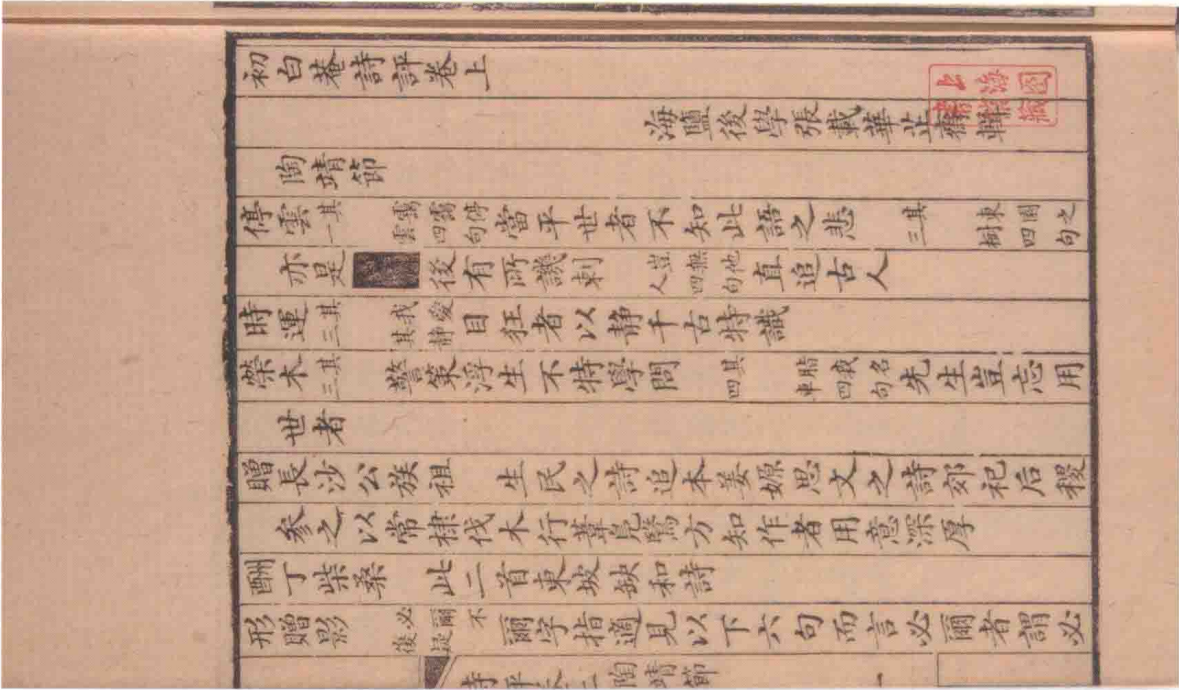 初白菴詩評卷上
海鹽後學張載華芷齋輯
陶靖節
停雲其一 靄靄停雲四句 當平世者不知此語之悲 其三 東園之樹四句
亦是 後有所譏刺 豈無他人四句 直追古人
時運其三 我愛其靜 目狂者以靜千古特識
榮木其三 警策浮生不特學問 其四 脂我名車四句 先生豈忘用
世者
贈長沙公族祖 生民之詩追本姜嫄思文之詩郊祀后稷
參之以常棣伐木行葦鳧鷖方知作者用意深厚
酬丁柴桑 此二首東坡缺和詩
形贈影 必爾不復疑 爾字指適見以下六句而言必爾者謂必
陶靖節
一
上海圖書館藏